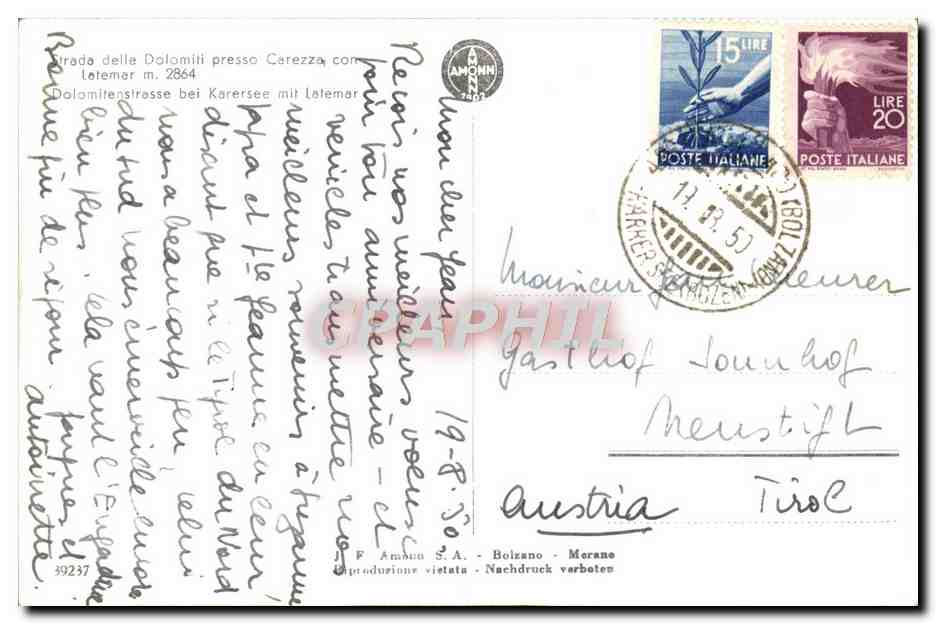 Strada delle Dolomiti presso Carezza con
Latemar m. 2864
Dolomitenstrasse bei Karersee mit Latemar
AMONN
1902
15 LIRE
POSTE ITALIANE
LIRE
20
POSTE ITALIANE
(BOLZANO)
19.08.50
19-8.50,
Mon cher Jean
Reçois nos meilleurs voeux
pour ton anniversaire - et
veuilles transmettre nos
meilleurs souvenirs à Suzanne
papa et Jeanne en leur
disant que si le Tyrol du Nord
nous a beaucoup plu celui
du sud nous émerveille encore
bien plus cela vaut l'Engadine
Bonne fin de séjour. Jacques et
antoinette.
Monsieur Jean Meurer
Gasthof Sonnhof
Neustift
Tirol
Austria
CPAPHIL
J. F. Amonn S. A. - Bolzano - Merano
Riproduzione vietata - Nachdruck verboten
39237